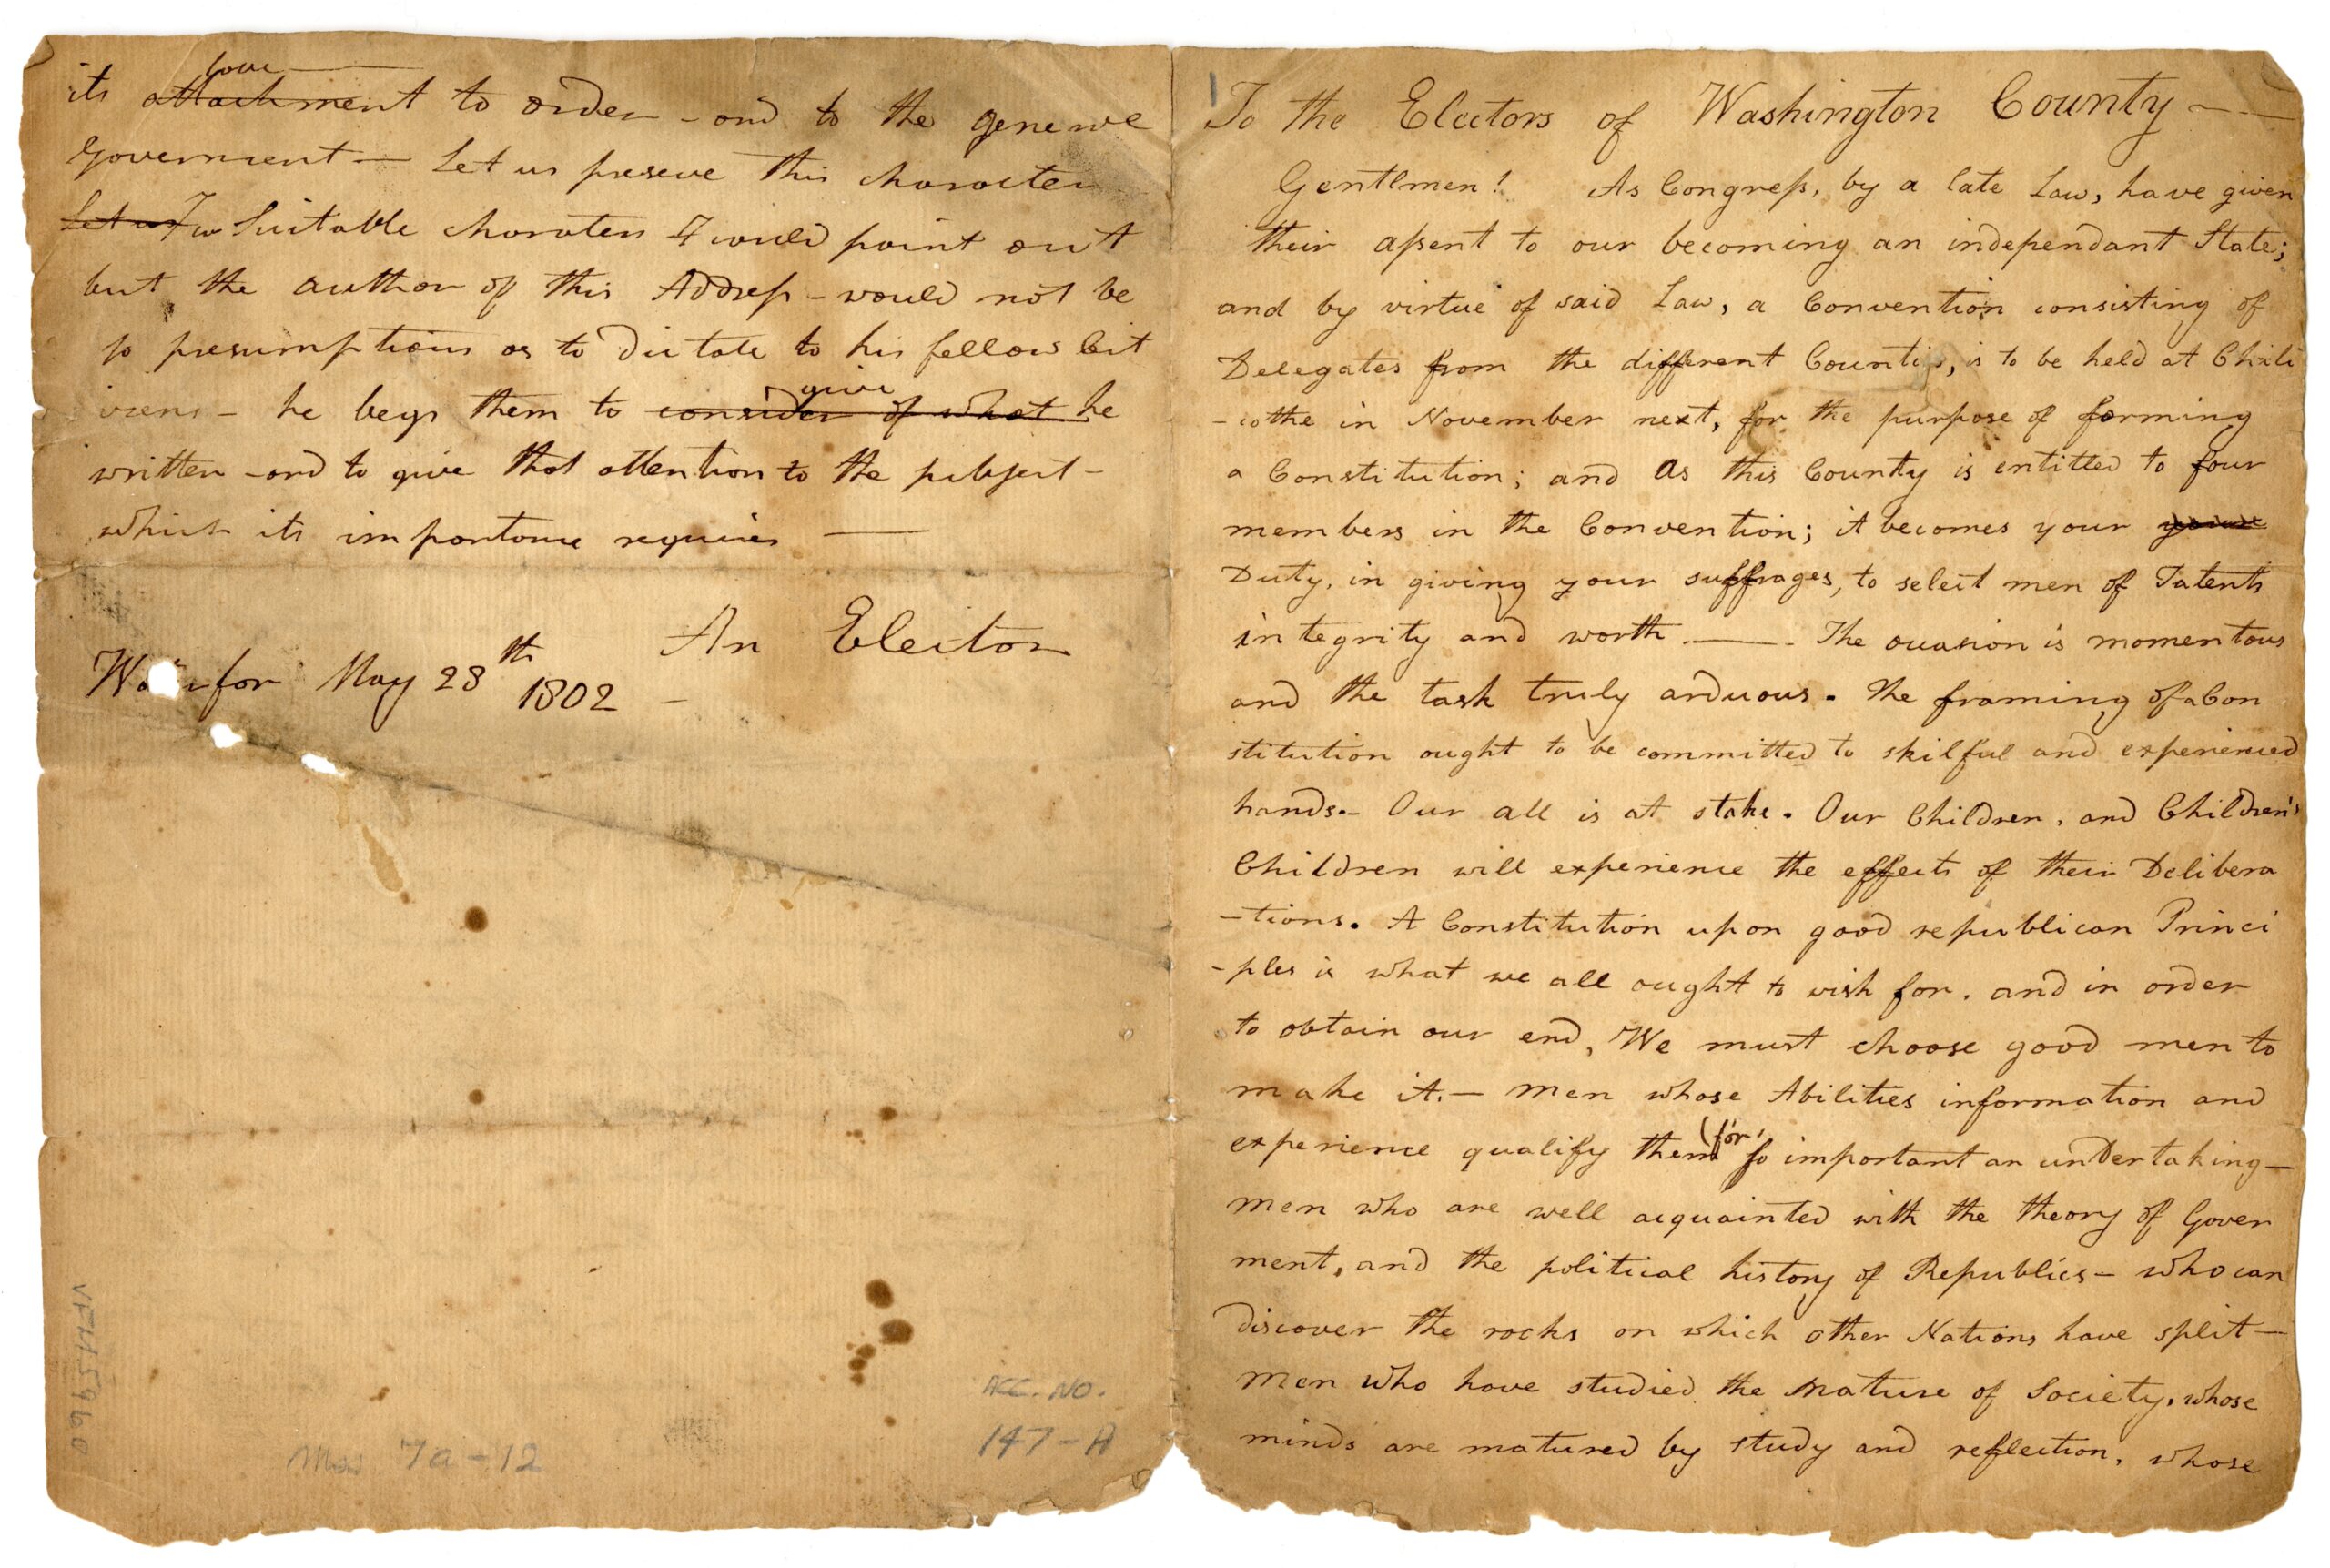 To the Electors of Washington County —
Gentlmen! As Congress, by a late Law, have given
their assent to our becoming an independant State;
and by virtue of said Law, a Convention consisting of
Delegates from the different Counties, is to be held at Chili
-cothe in November next, for the purpose of forming
a Constitution; and as this County is entitled to four
members in the Convention; it becomes your
Duty, in giving your suffrages, to select men of Talents
integrity and worth. — The occasion is momentous
and the task truly arduous. The framing of a Con
stitution ought to be committed to skilful and experienced
hands.- Our all is at stake. Our Children, and Children's
Children will experience the effects of their Delibera
-tions. A Constitution upon good republican Princi
-ples is what we all ought to wish for. and in order
to obtain our end, We must choose good men to
make it. — men whose Abilities information and
experience qualify them for so important an undertaking —
men who are well acquainted with the theory of Gover
ment, and the political history of Republics — who can
discover the rocks on which other Nations have split —
Men who have studied the nature of Society, whose
minds are matured by study and reflection, whose
its attachment love to order - and to the
Government — Let us preserve this character
Let us Few Suitable characters I could point out
but the author of this Address - would not be
so presumptious as to dictate to his fellow Cit
izens - he begs them to consider of what give he
written - and to give that attention to the subject -
which its importance requires —
An Elector
May 28th 1802 -
VFM 5960
Mss 7a-12
ACC. NO.
147-A